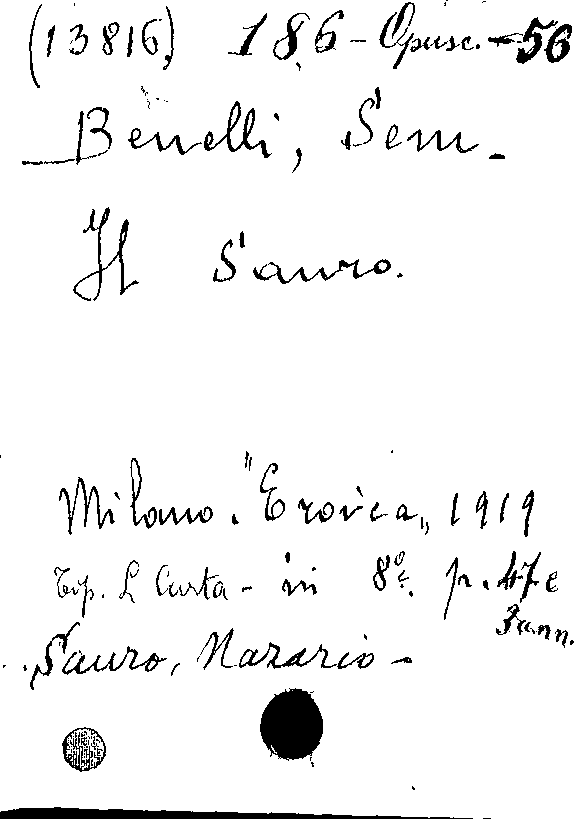 (13816) 186 - Opusc. - 56
Benelli, Sem -
Il Sauro.
Milano. "Eroica„ 1919
Tip. L. Curta - in 8º. p. 47 e
3 ann.
Sauro, Nazario -